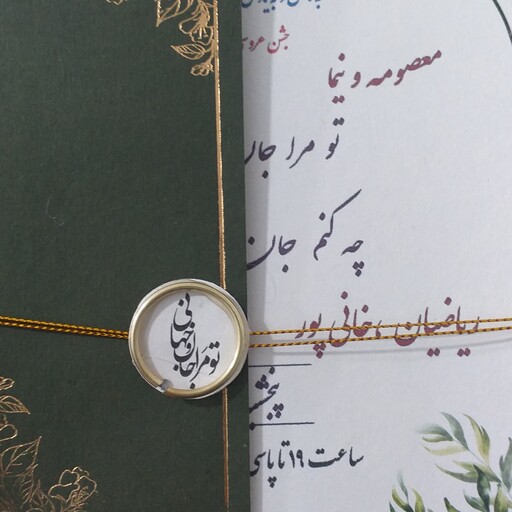 جشن
معصومه و نیما
تو مرا جان
چه کنم جان
ریاضیان ، خانی پور
ساعت ۱۹ تا پاسی
تو مرا جان و جهانی